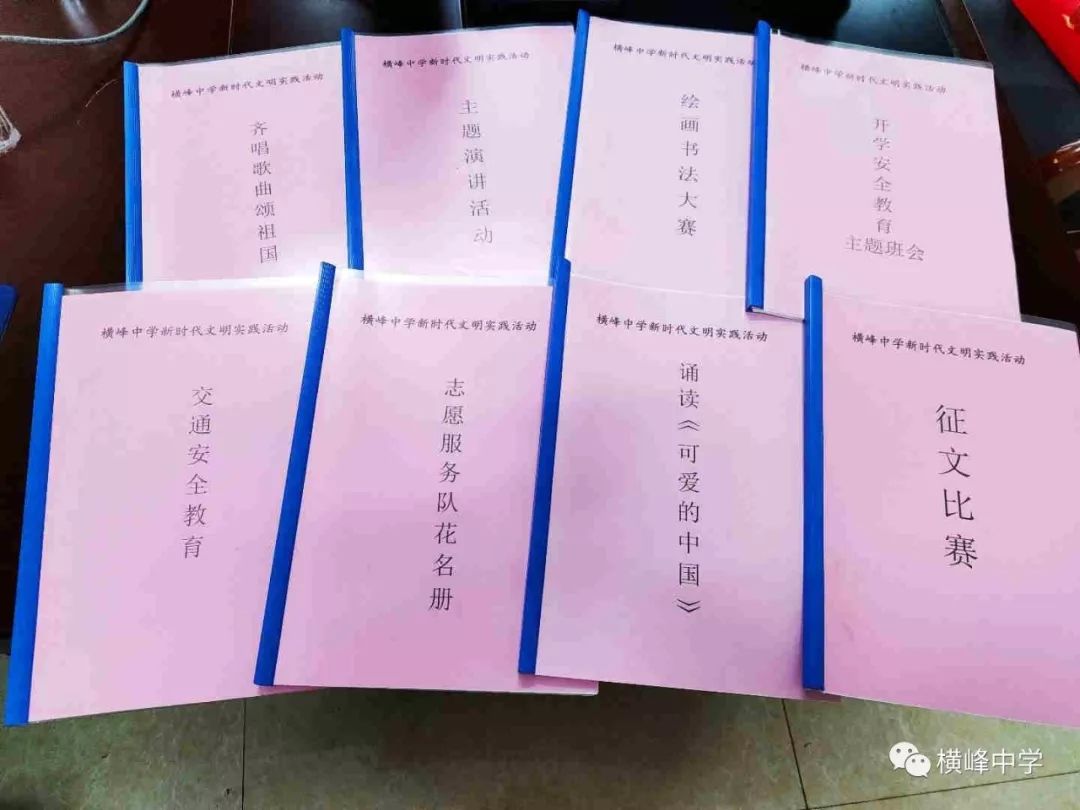 横峰中学新时代文明实践活动
齐唱歌曲颂祖国
横峰中学新时代文明实践活动
主题演讲活动
横峰中学新时代文明实践活动
绘画书法大赛
横峰中学新时代文明实践活动
开学安全教育
主题班会
横峰中学新时代文明实践活动
交通安全教育
横峰中学新时代文明实践活动
志愿服务队花名册
横峰中学新时代文明实践活动
诵读《可爱的中国》
横峰中学新时代文明实践活动
征文比赛
横峰中学